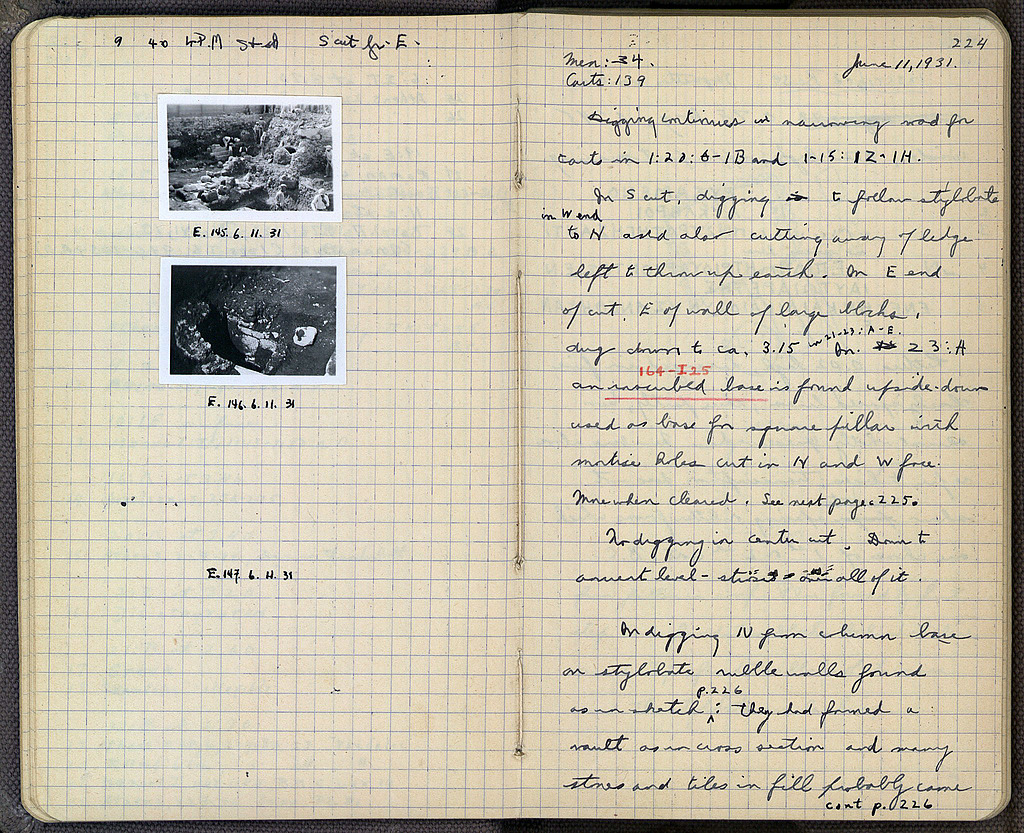 9 40 4 P.M S cut fr. E.
E. 145. 6. 11. 31
E. 146. 6. 11. 31
E. 147. 6. 11. 31
224
Men: 34.
June 11, 1931.
Carts: 139
Digging continues in narrowing road for
carts in 1-20: 6-1B and 1-15: 12-1H.
In S cut, digging to follow stylobate
in W end
to N and also cutting away of ledge
left to throw up earth. In E end
of cut, E of wall of large blocks,
in 21-23: A-E.
dug down to ca. 3.15 In 23:A
164-I 25
an inscribed base is found upside-down
used as base for square pillar with
mortise holes cut in N and W face.
More when cleared. See next page. 225.
No digging in center cut, Down to
ancient level - all of it.
In digging N from column base
on stylobate rubble walls found
p. 226
as in sketch; they had formed a
vault as in cross section and many
stones and tiles in fill probably came
cont p. 226